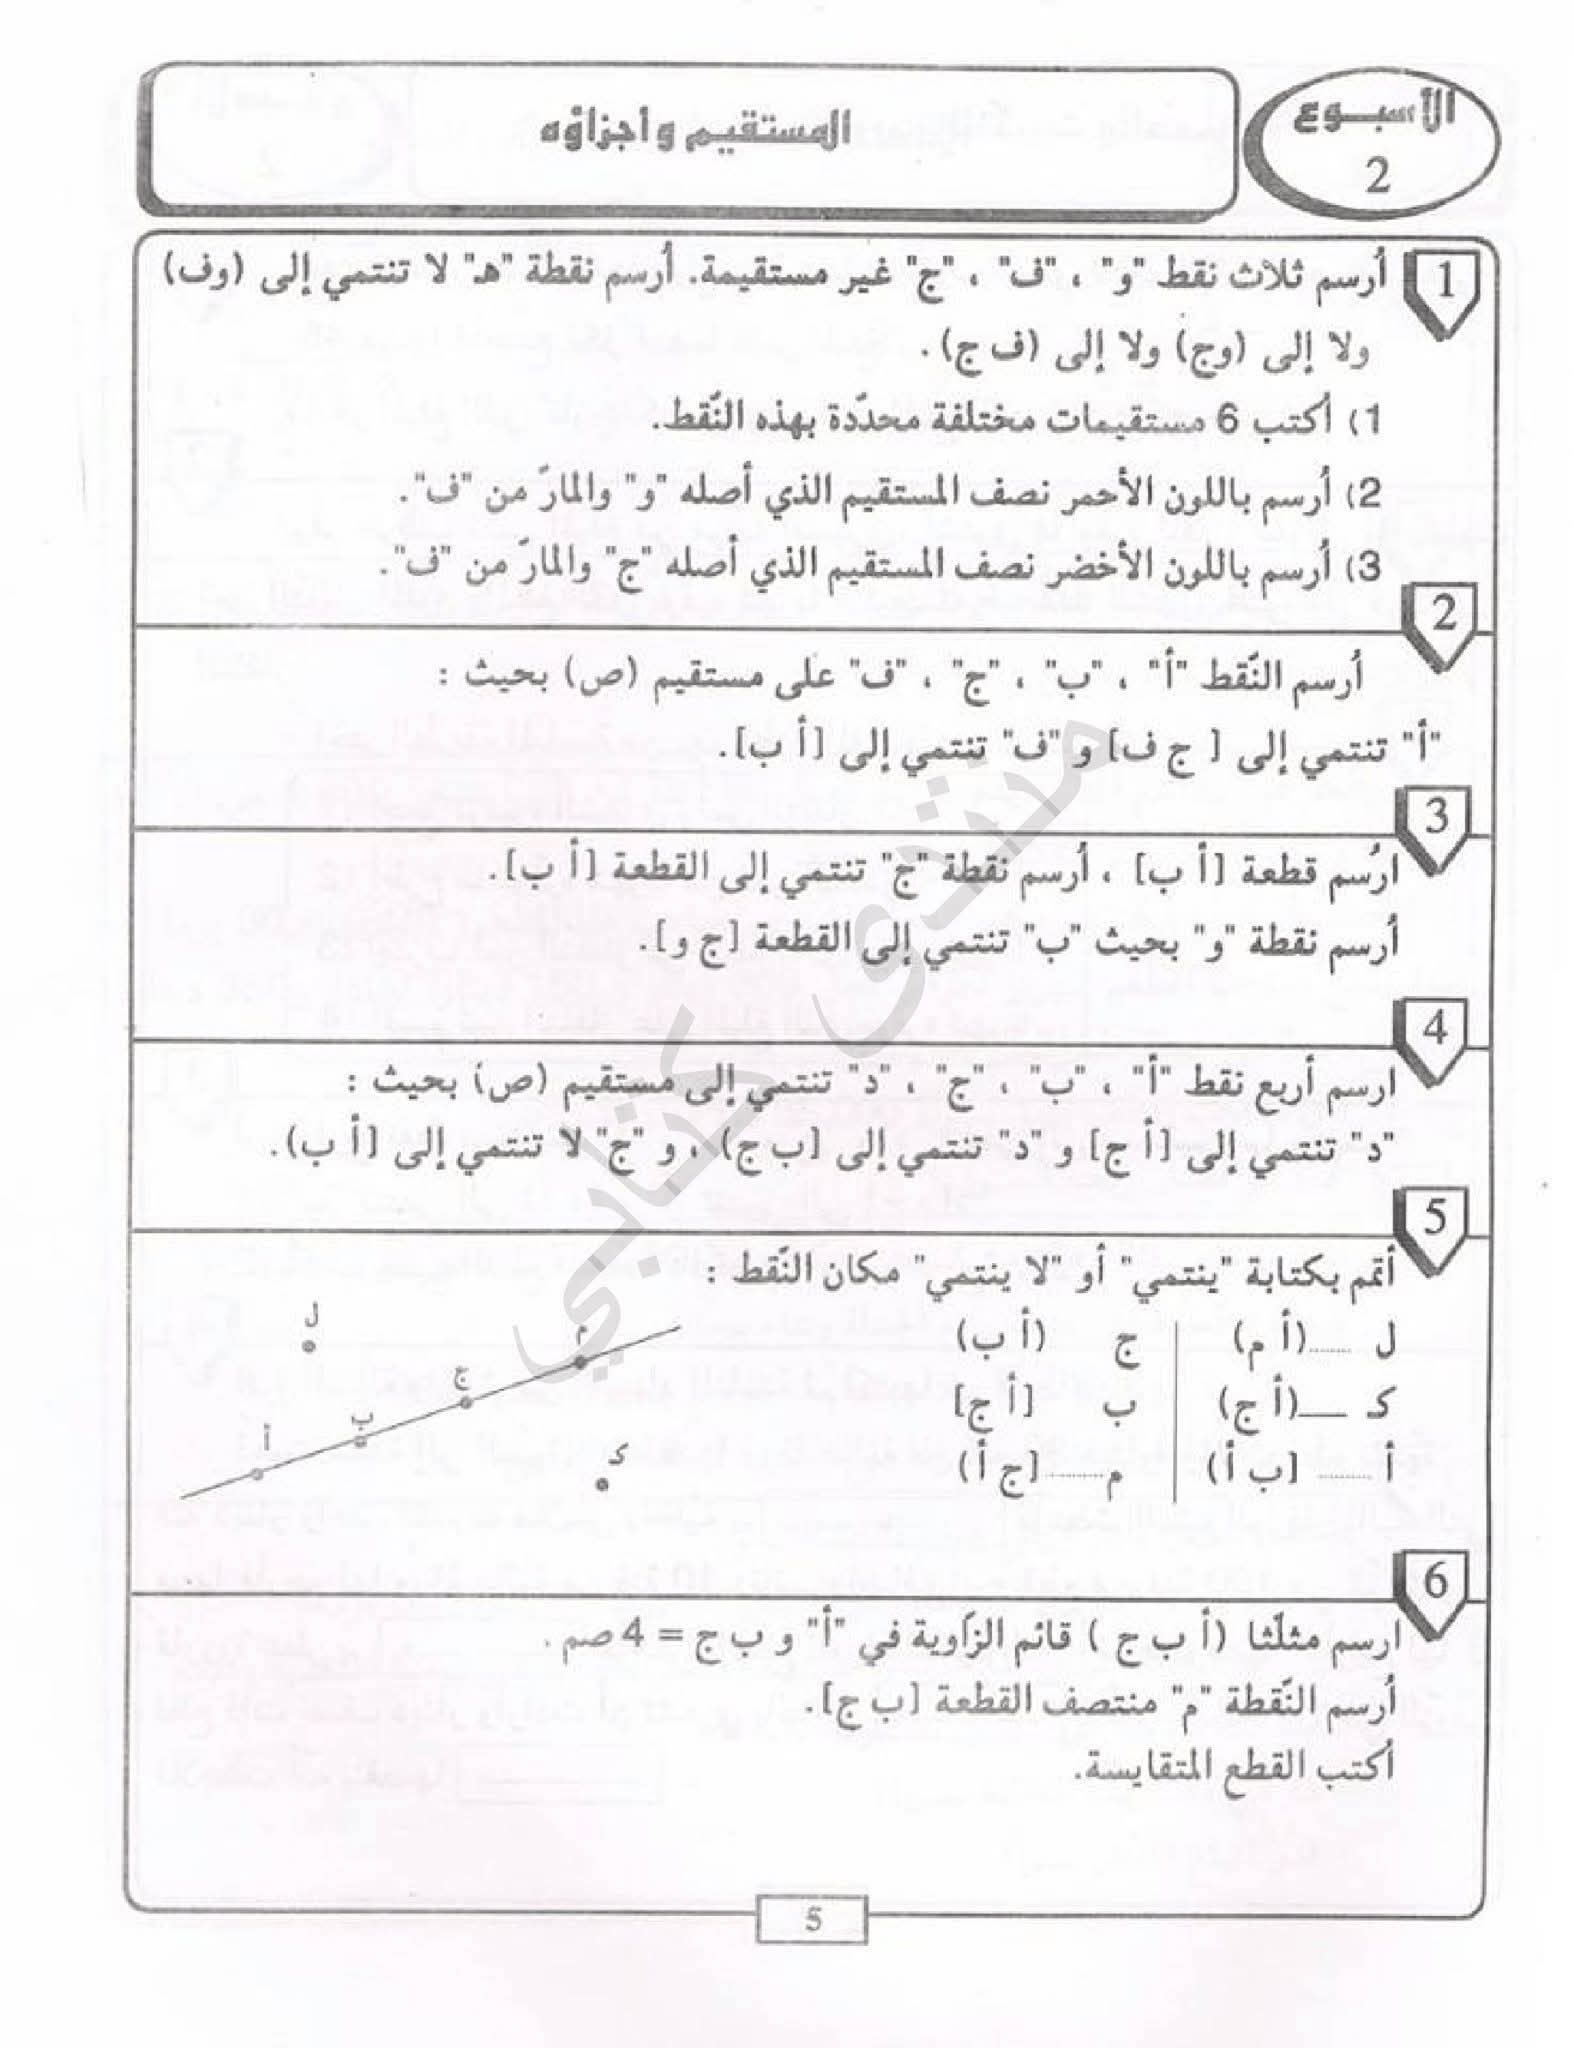 الأسبوع
2
المستقيم وأجزاؤه
1
أرسم ثلاث نقط "و" ، "ف" ، "ج" غير مستقيمة. أرسم نقطة "هـ" لا تنتمي إلى (وف)
ولا إلى (وج) ولا إلى (ف ج).
1) أكتب 6 مستقيمات مختلفة محدّدة بهذه النّقط.
2) أرسم باللون الأحمر نصف المستقيم الذي أصله "و" والمارّ من "ف".
3) أرسم باللون الأخضر نصف المستقيم الذي أصله "ج" والمارّ من "ف".
2
أرسم النّقط "أ" ، "ب" ، "ج" ، "ف" على مستقيم (ص) بحيث :
"أ" تنتمي إلى [ ج ف] و "ف" تنتمي إلى [أ ب].
3
ارُسم قطعة [أ ب] ، أرسم نقطة "ج" تنتمي إلى القطعة [أ ب].
أرسم نقطة "و" بحيث "ب" تنتمي إلى القطعة [ج و].
4
ارسم أربع نقط "أ" ، "ب" ، "ج" ، "د" تنتمي إلى مستقيم (ص) بحيث :
"د" تنتمي إلى [أ ج] و "د" تنتمي إلى [ب ج) ، و "ج" لا تنتمي إلى [أ ب).
5
أتمم بكتابة "ينتمي" أو "لا ينتمي" مكان النّقط :
ل ......(أ م) ج (أ ب)
كـ ___(أ ج) ب [أ ج]
أ ...... [ب أ) م ......[ج أ)
ل
م
ج
ب
أ
كـ
6
ارسم مثلّثا (أ ب ج ) قائم الزّاوية في "أ" و ب ج = 4 صم .
أرسم النّقطة "م" منتصف القطعة [ب ج].
أكتب القطع المتقايسة.
5
منتدى كتابي